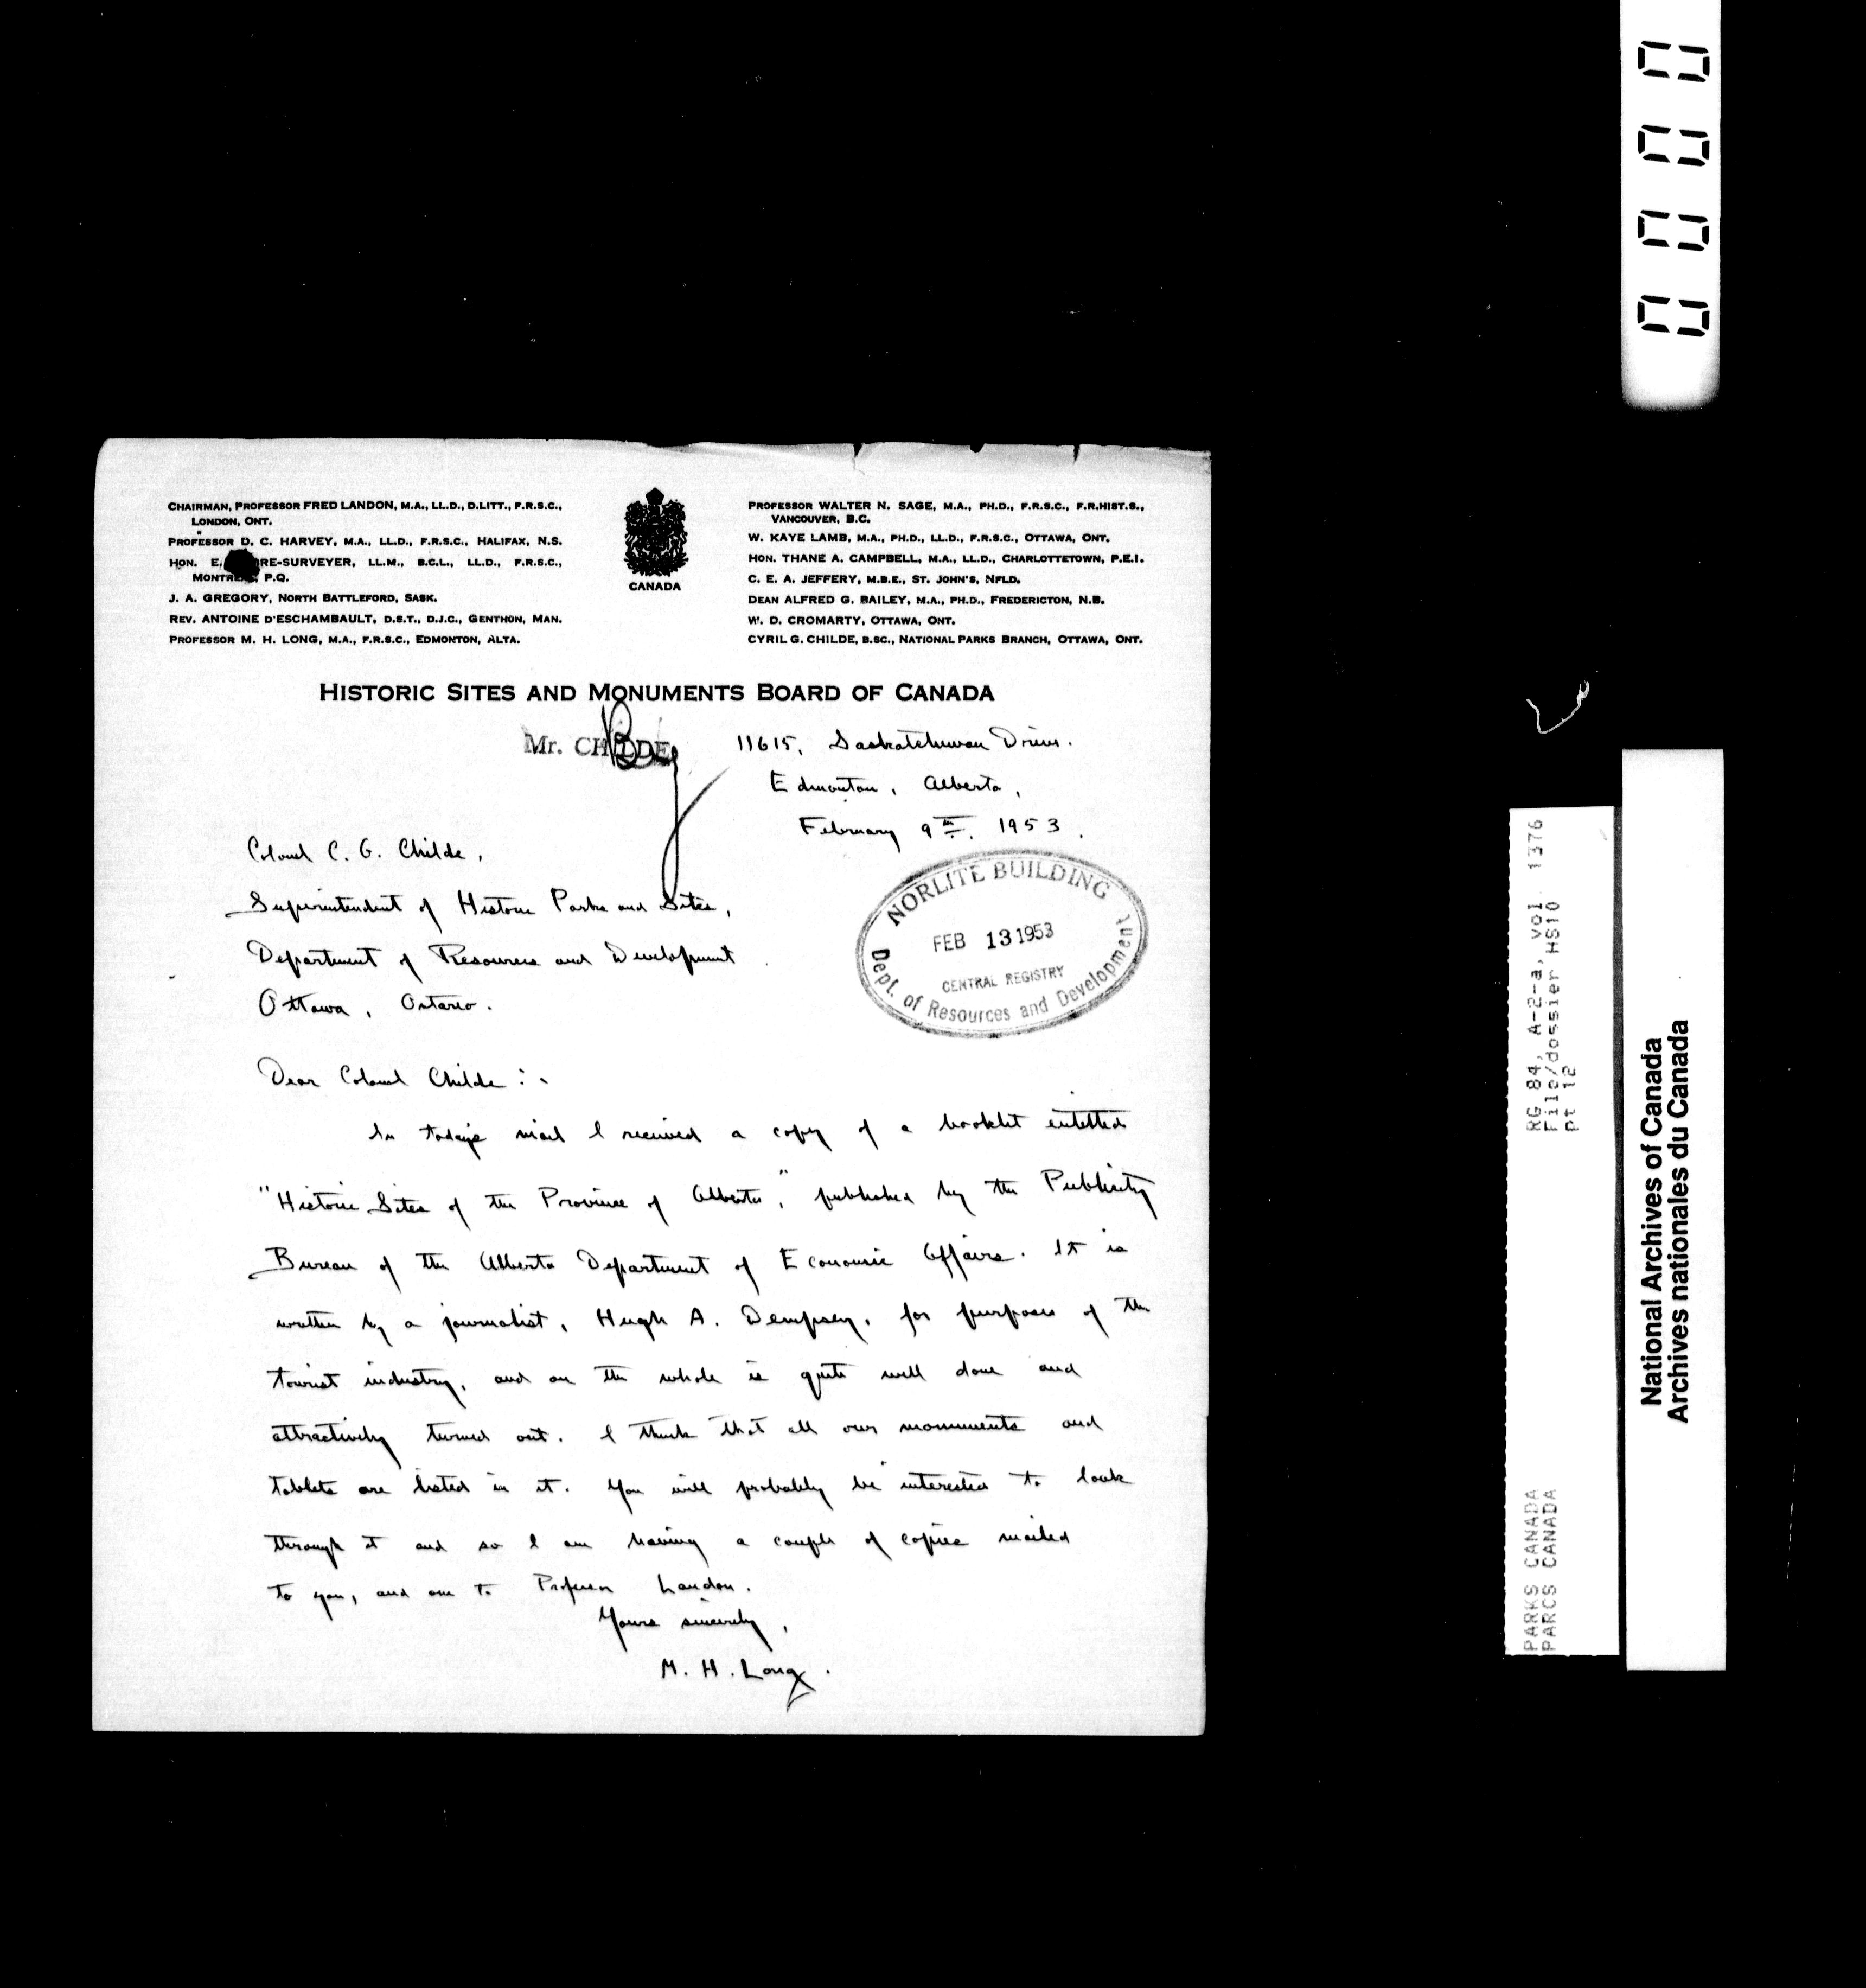 CHAIRMAN, PROFESSOR FRED LANDON, M.A., LL.D., D.LITT., F.R.S.C.,
LONDON, ONT.
PROFESSOR D. C. HARVEY, M.A., LL.D., F.R.S.C., HALIFAX, N.S.
HON. E. RE-SURVEYER, LL.M., B.C.L., LL.D., F.R.S.C.,
MONTREAL, P.Q.
J. A. GREGORY, NORTH BATTLEFORD, SASK.
REV. ANTOINE D'ESCHAMBAULT, D.S.T., D.J.C., GENTHON, MAN.
PROFESSOR M. H. LONG, M.A., F.R.S.C., EDMONTON, ALTA.
CANADA
PROFESSOR WALTER N. SAGE, M.A., PH.D., F.R.S.C., F.R.HIST.S.,
VANCOUVER, B.C.
W. KAYE LAMB, M.A., PH.D., LL.D., F.R.S.C., OTTAWA, ONT.
HON. THANE A. CAMPBELL, M.A., LL.D., CHARLOTTETOWN, P.E.I.
C. E. A. JEFFERY, M.B.E., ST. JOHN'S, NFLD.
DEAN ALFRED G. BAILEY, M.A., PH.D., FREDERICTON, N.B.
W. D. CROMARTY, OTTAWA, ONT.
CYRIL G. CHILDE, B.SC., NATIONAL PARKS BRANCH, OTTAWA, ONT.
HISTORIC SITES AND MONUMENTS BOARD OF CANADA
Mr. CHILDE
11615, Saskatchewan Drive.
Edmonton, Alberta,
February 9th. 1953.
Colonel C. G. Childe,
Superintendent of Historic Parks and Sites,
Department of Resources and Development
Ottawa, Ontario.
NORLITE BUILDING
FEB 13 1953
CENTRAL REGISTRY
Dept. of Resources and Development
Dear Colonel Childe:-
In today's mail I received a copy of a booklet entitled
"Historic Sites of the Province of Alberta," published by the Publicity
Bureau of the Alberta Department of Economic Affairs. It is
written by a journalist, Hugh A. Dempsey, for purposes of the
tourist industry, and on the whole is quite well done and
attractively turned out. I think that all our monuments and
tablets are listed in it. You will probably be interested to look
through it and so I am having a couple of copies mailed
to you, and one to Professor Landon.
Yours sincerely,
M. H. Long.
0000
RG 84, A-2-a, vol 1376
File/dossier HS10
pt 12
PARKS CANADA
PARCS CANADA
National Archives of Canada
Archives nationales du Canada